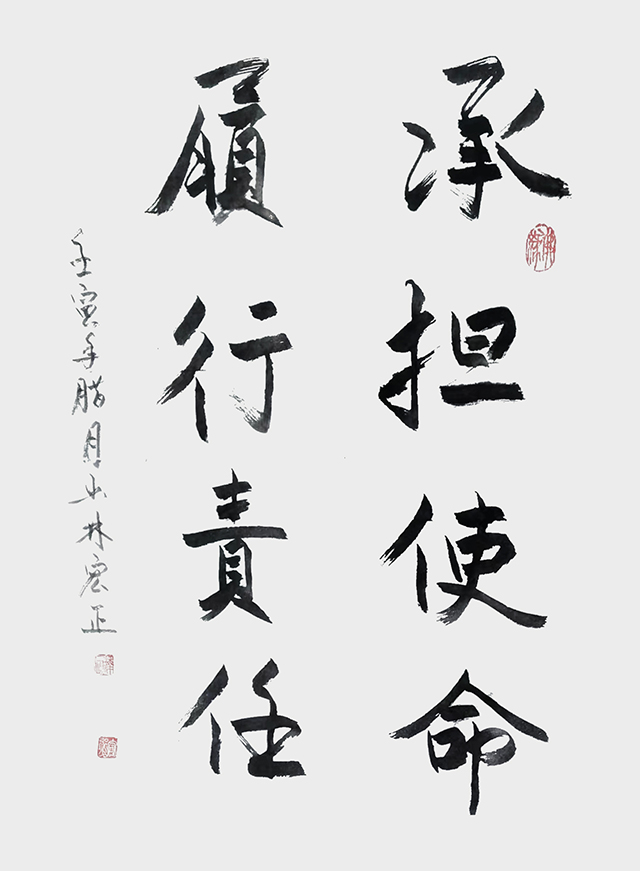 承担使命
履行責任
壬寅年腊月小林宏正